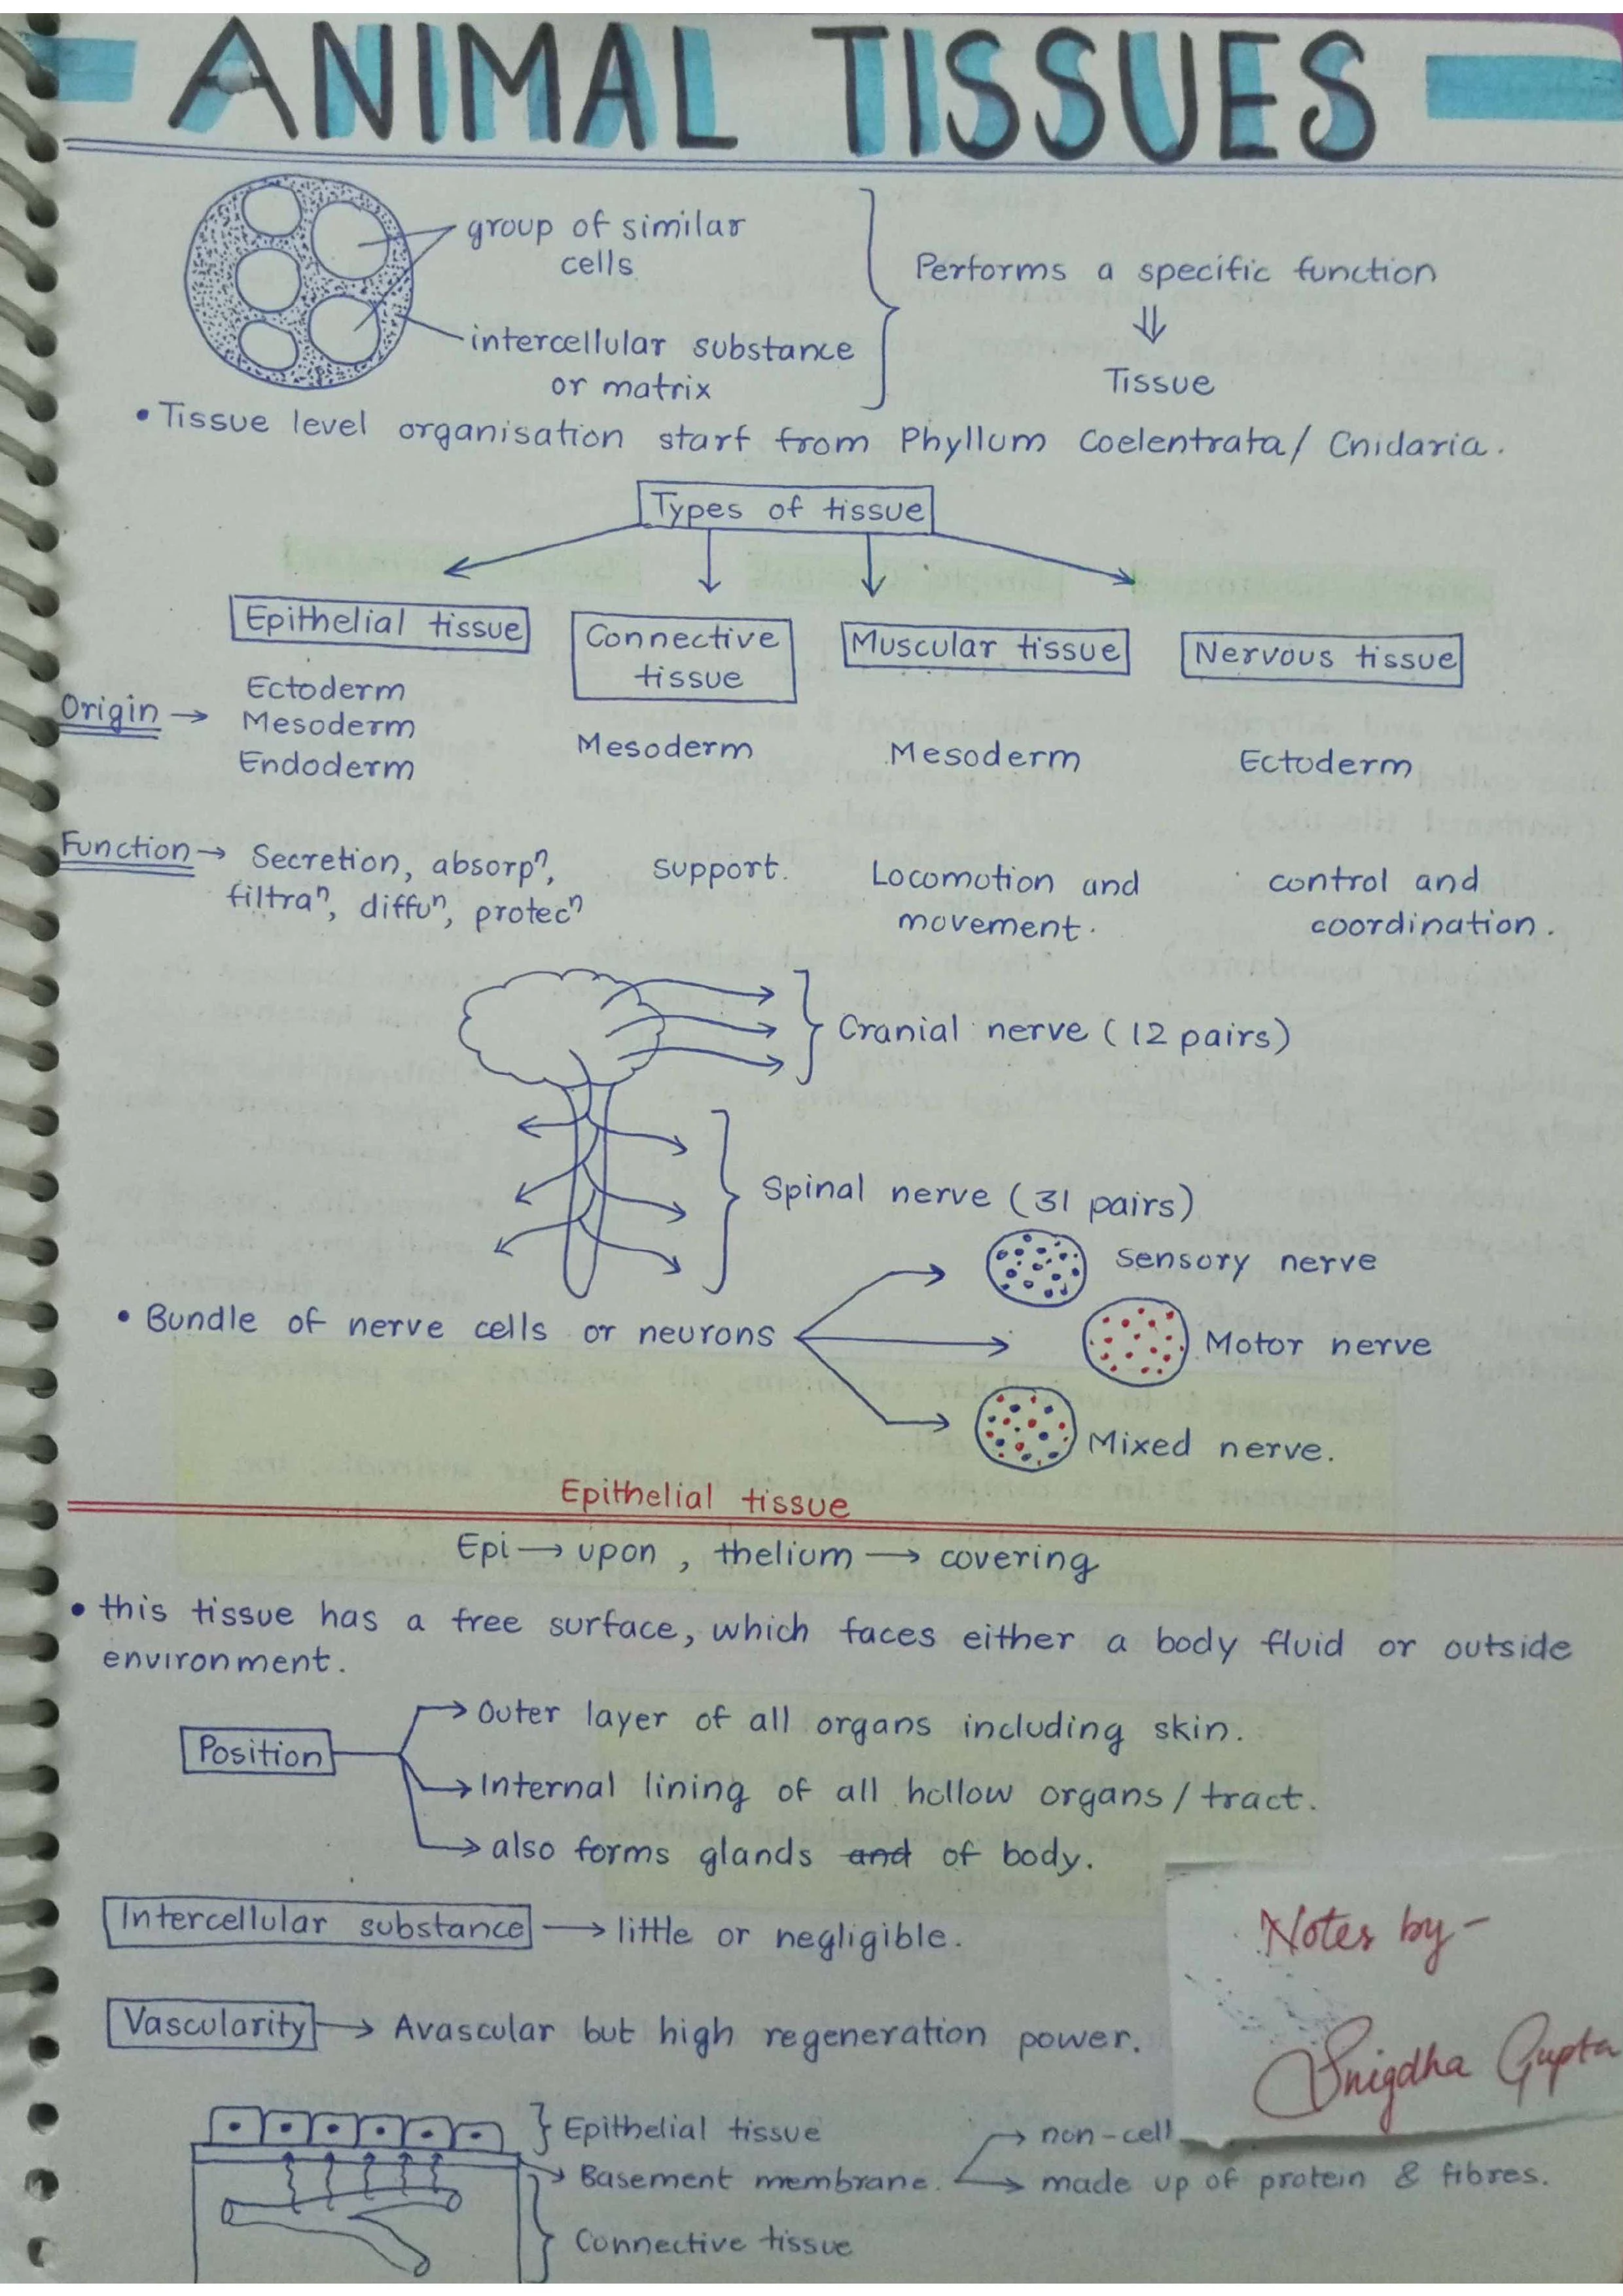 ANIMAL TISSUES
group of similar
cells
intercellular substance
or matrix
Performs a specific function
⇓
Tissue
• Tissue level organisation start from Phyllum Coelentrata / Cnidaria.
Types of tissue
Epithelial tissue
Connective
tissue
Muscular tissue
Nervous tissue
Origin →
Ectoderm
Mesoderm
Endoderm
Mesoderm
Mesoderm
Ectoderm
Function →
Secretion, absorpⁿ,
filtraⁿ, diffuⁿ, protecⁿ
support.
Locomotion and
movement.
control and
coordination.
Cranial nerve (12 pairs)
Spinal nerve (31 pairs)
• Bundle of nerve cells or neurons
Sensory nerve
Motor nerve
Mixed nerve.
Epithelial tissue
Epi → upon , thelium → covering
• this tissue has a free surface, which faces either a body fluid or outside
environment.
Position
→ Outer layer of all organs including skin.
→ Internal lining of all hollow organs / tract.
→ also forms glands and of body.
Intercellular substance → little or negligible.
Vascularity → Avascular but high regeneration power.
Notes by -
Snigdha Gupta
Epithelial tissue
Basement membrane.
→ non-cell
→ made up of protein & fibres.
Connective tissue